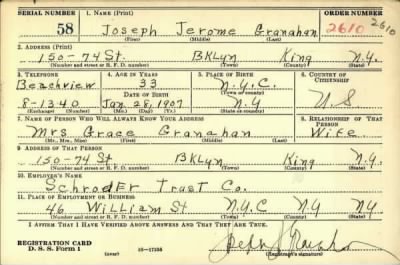 SERIAL NUMBER 1. NAME (Print) ORDER NUMBER
58 Joseph Jerome Granahan 2610 2610
(First) (Middle) (Last)
2. ADDRESS (Print)
150-74 St. BKLyn King N.Y.
(Number and street or R. F. D. number) (Town) (County) (State)
3. TELEPHONE 4. AGE IN YEARS 5. PLACE OF BIRTH 6. COUNTRY OF CITIZENSHIP
Beachview 33 N.Y.C.
DATE OF BIRTH (Town or county)
8-1340 Jan 28, 1907 N.Y US
(Exchange) (Number) (Mo.) (Day) (Yr.) (State or country)
7. NAME OF PERSON WHO WILL ALWAYS KNOW YOUR ADDRESS 8. RELATIONSHIP OF THAT PERSON
Mrs Grace Granahan Wife
(Mr., Mrs., Miss) (First) (Middle) (Last)
9. ADDRESS OF THAT PERSON
150-74 St BKLyn King N.Y.
(Number and street or R. F. D. number) (Town) (County) (State)
10. EMPLOYER'S NAME
SchrodEr Trust Co.
11. PLACE OF EMPLOYMENT OR BUSINESS
46 William St N.Y.C NY N.Y
(Number and street or R. F. D. number) (Town) (County) (State)
I AFFIRM THAT I HAVE VERIFIED ABOVE ANSWERS AND THAT THEY ARE TRUE.
REGISTRATION CARD
D. S. S. Form 1 (over) 16-17105 (Registrant's signature)